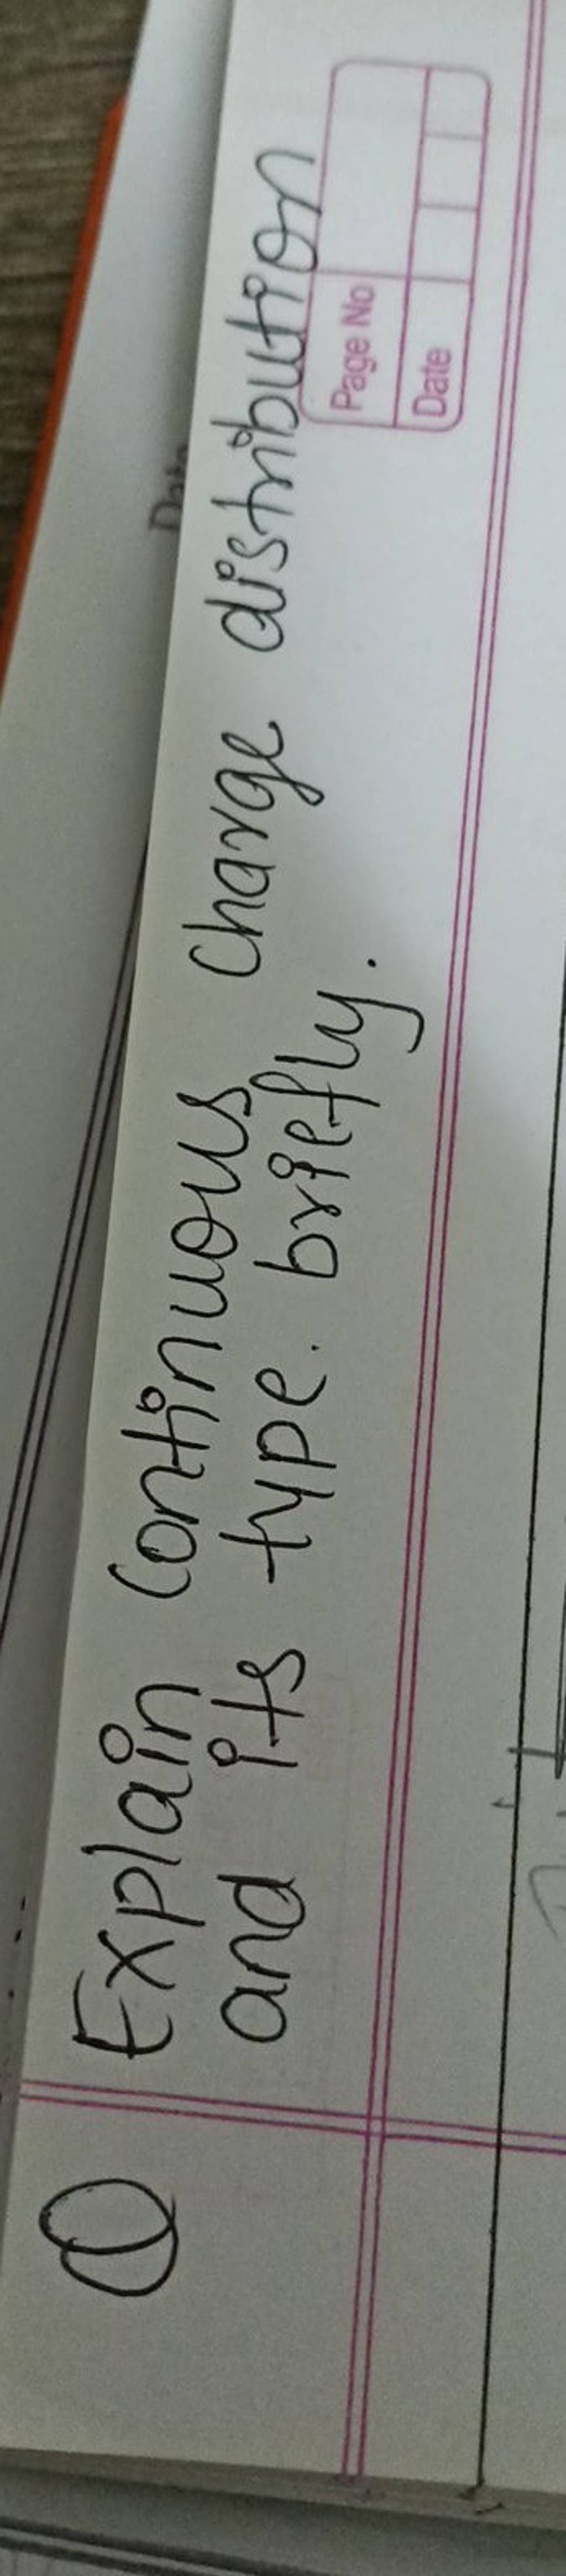 Q Explain Continuous Charge distribution
and its type. briefly.
Page No
Date